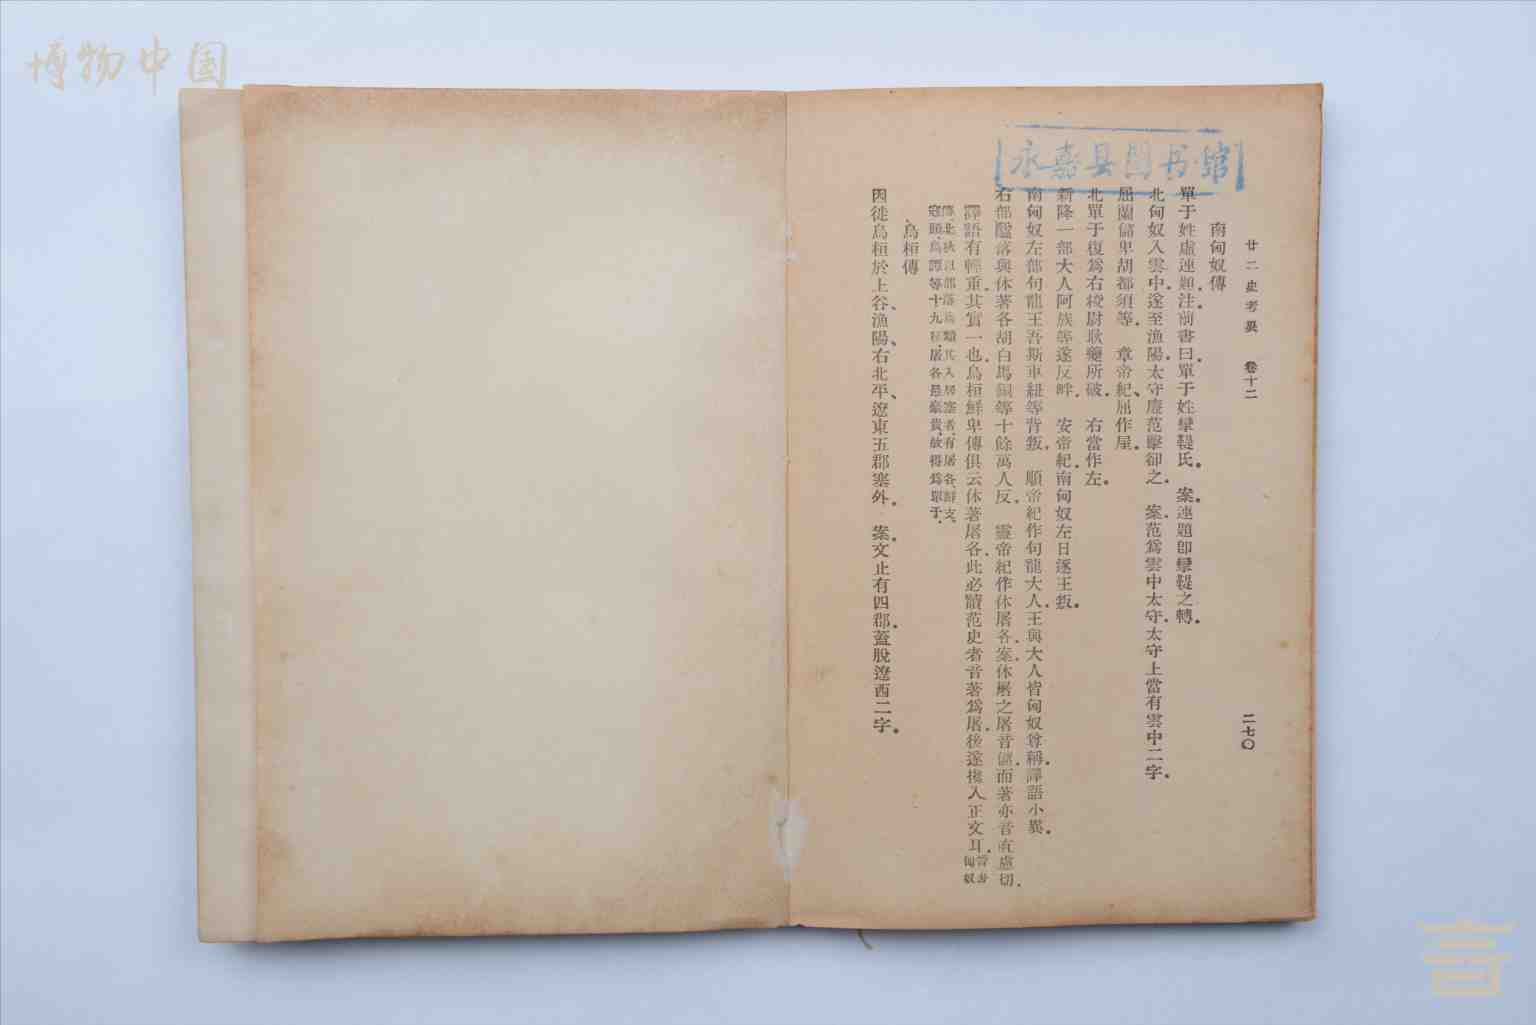 博物中国
永嘉县图书馆
廿二史考異　卷十二　二七〇
南匈奴傳
單于姓虛連題。注、前書曰、單于姓攣鞮氏。　案、連題卽攣鞮之轉。
北匈奴入雲中、遂至漁陽、太守廉范擊卻之。　案、范爲雲中太守、太守上當有雲中二字。
屈蘭儲卑胡都須等。　章帝紀、屈作屋。
北單于復爲右校尉耿夔所破。　右當作左。
新降一部大人阿族等遂反畔。　安帝紀、南匈奴左日逐王叛。
南匈奴左部句龍王吾斯車紐等背叛。　順帝紀作句龍大人、王與大人皆匈奴尊稱、譯語小異。
右部醯落與休著各胡白馬銅等十餘萬人反。　靈帝紀作休屠各、案、休屠之屠音儲、而著亦音直慮切、
譯語有輕重、其實一也、烏桓鮮卑傳俱云休著屠各、此必讀范史者音著爲屠、後遂攙入正文耳。晉書匈奴
傳、北狄以部落爲類、其入居塞者、有屠各、鮮支、
寇頭、烏譚等十九種、屠各最豪貴、故得爲單于。
烏桓傳
因徙烏桓於上谷、漁陽、右北平、遼東五郡塞外。　案、文止有四郡、蓋脫遼西二字。